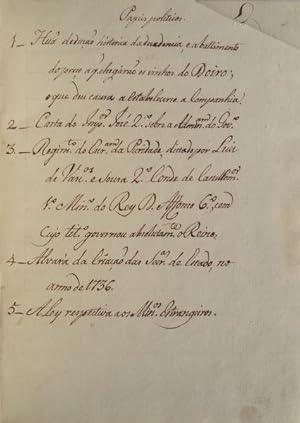 Papeis politicos.
1_ Hũa dedução historica da decadencia, e abatimento
do preço a q chegarão os vinhos do Doiro;
o que deu causa a Estabelecerse a Companhia.
2_ Carta do Imp.or José 2.o sobre a Admn.am do Gov.o
3_ Regim.to do da Puridade, dictado por Luis
de Van.os e Sousa 2.o Conde de Castelhm.r
1.o Min.o de Rey D. Affonso 6.o, com
Cujo tit.o governou absolutam.te o Reino.
4_ Alvará da Criação das Secr.as de Estado, no
anno de 1736.
5_ A Ley respectiva aos Min.os Estrangeiros.